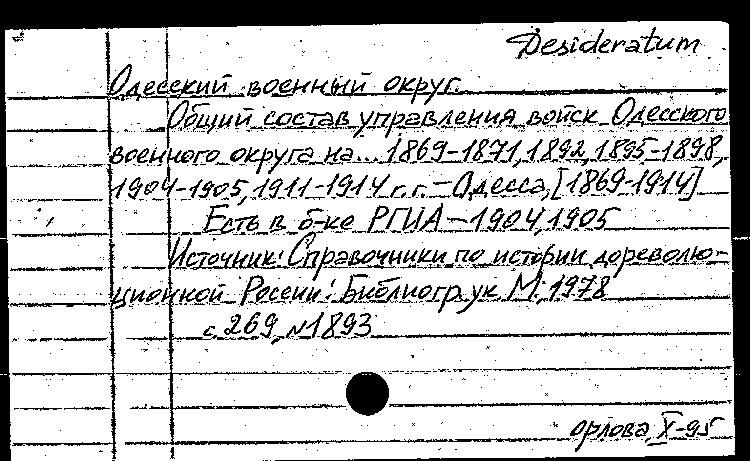 Desideratum
Одесский военный округ.
Общий состав управления войск Одесского
военного округа на... 1869-1871, 1892, 1895-1898,
1904-1905, 1911-1914 г.г. - Одесса, [1869-1914]
Есть в б-ке РГИА - 1904, 1905
Источник: Справочники по истории дореволю-
ционной России: Библиогр. ук. М., 1978
с. 269, №1893
Орлова, X-95